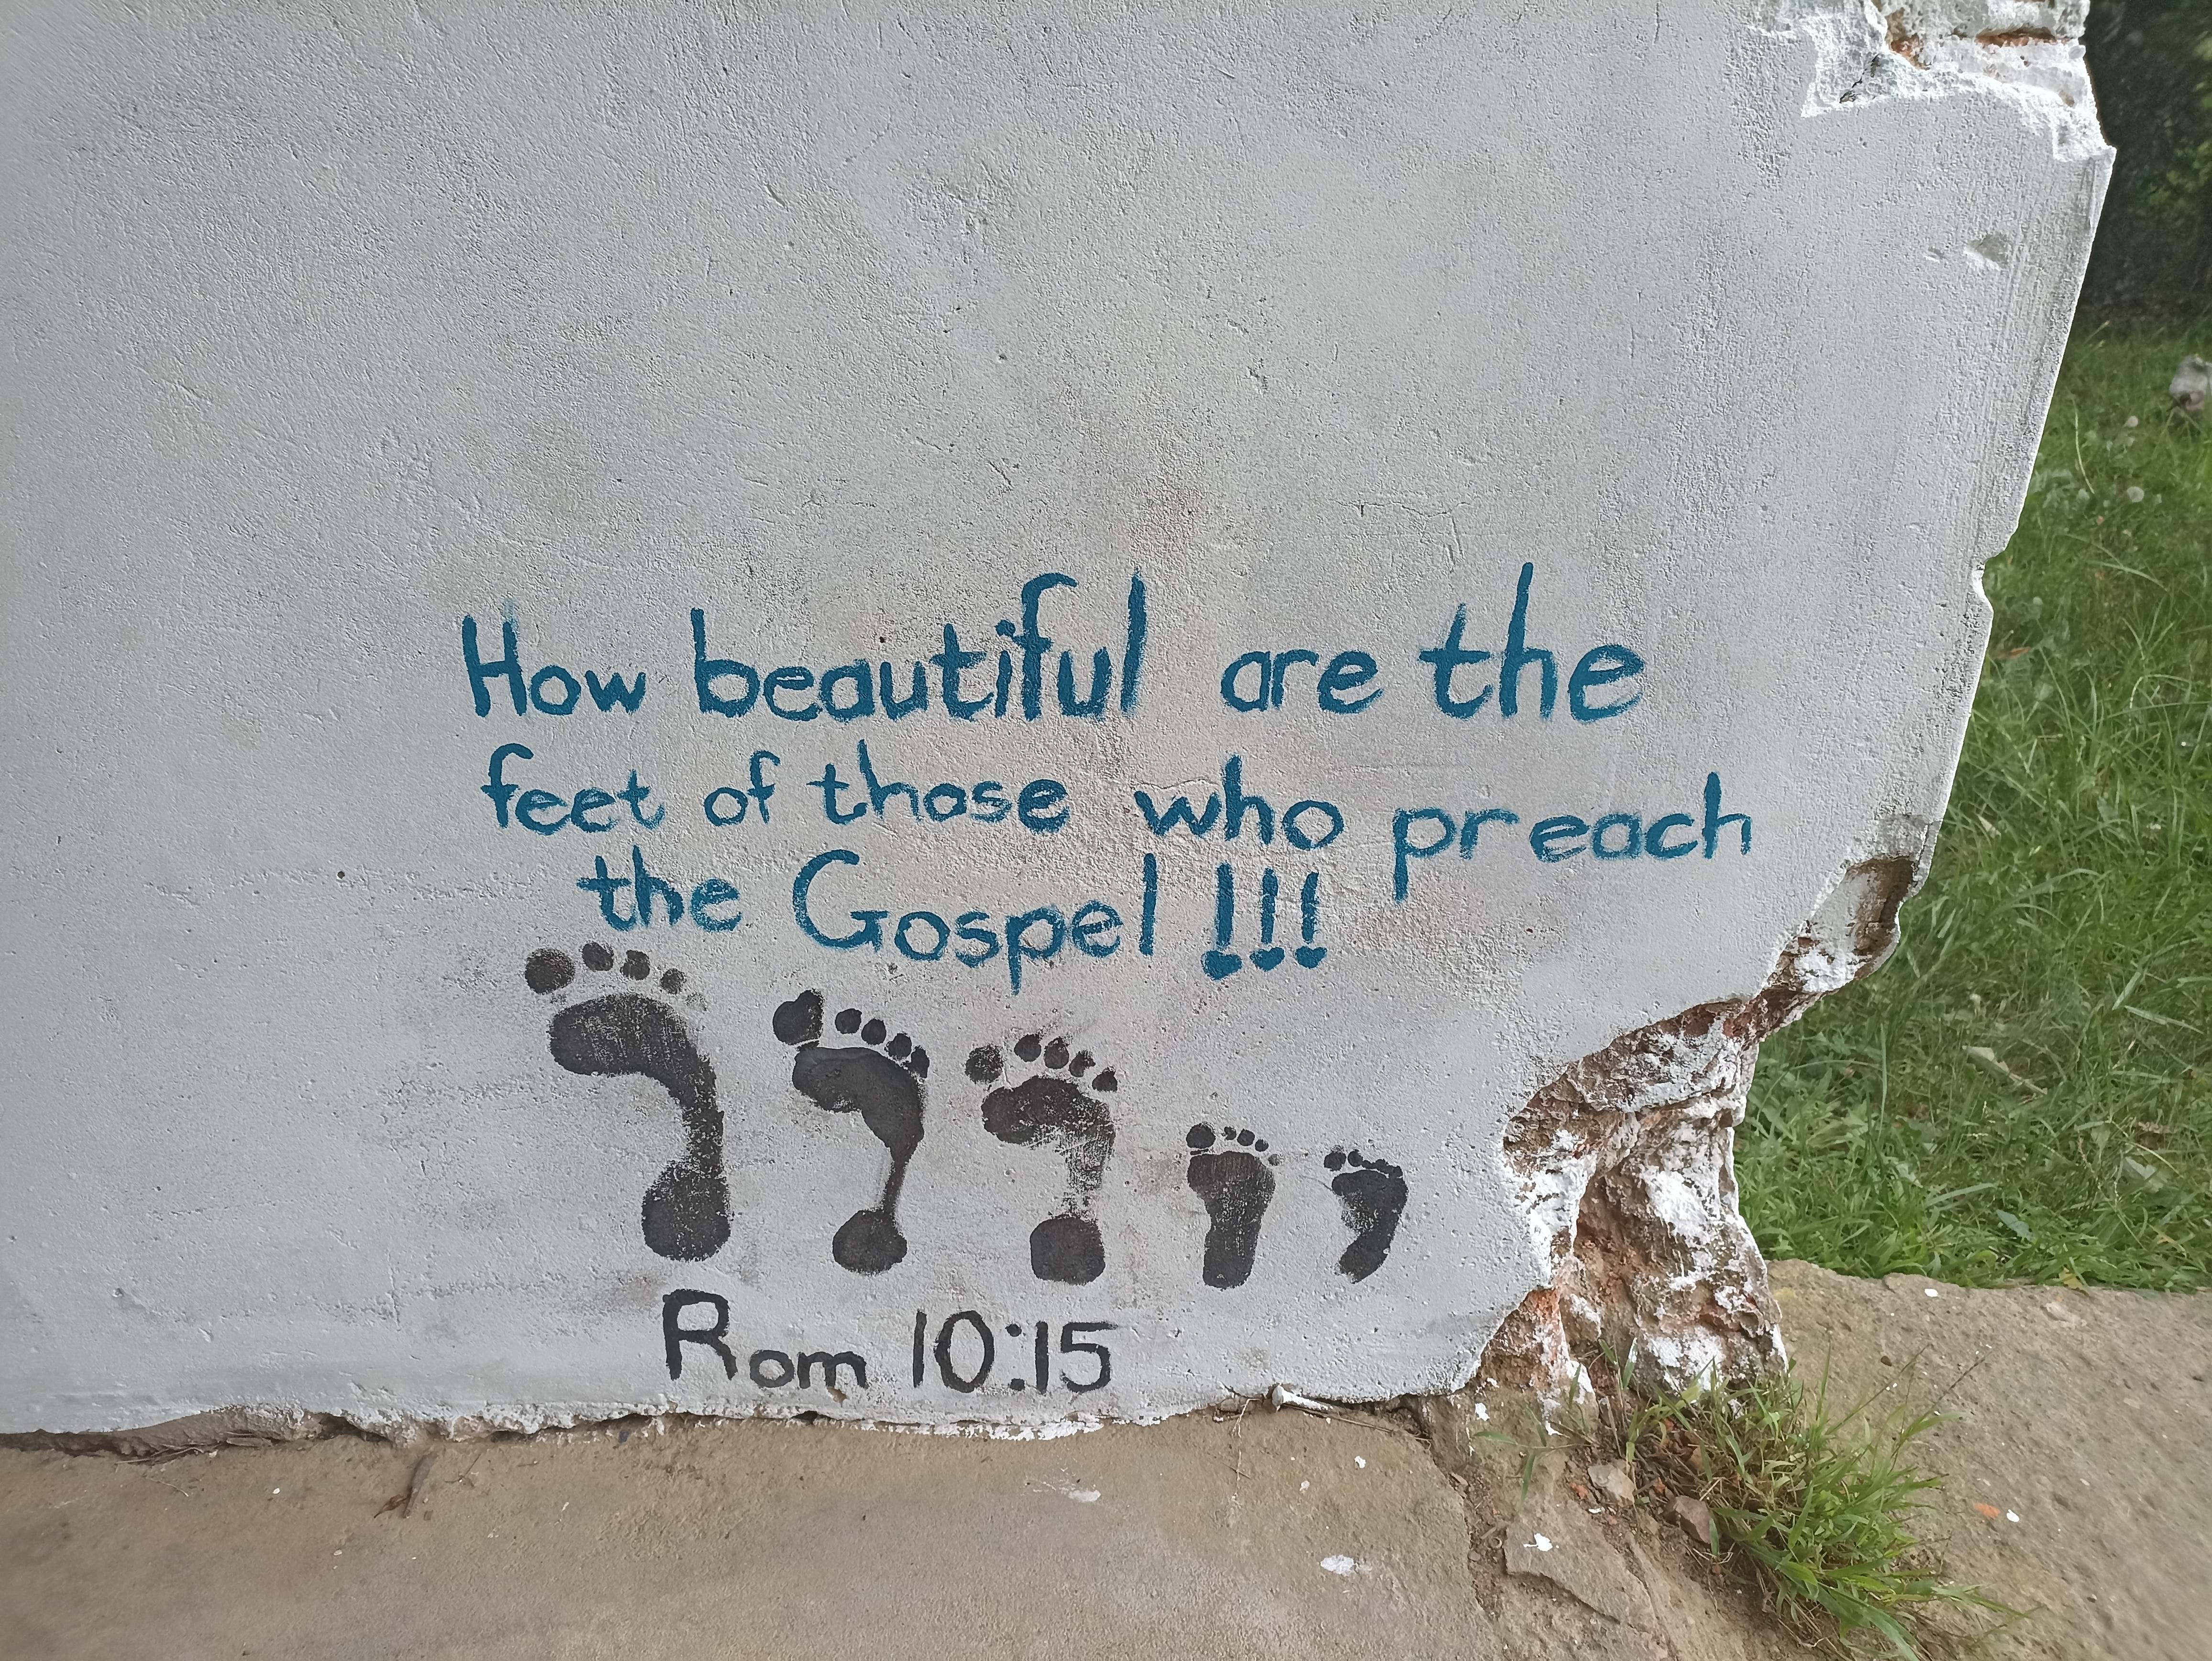 How beautiful are the
feet of those who preach
the Gospel !!!
Rom 10:15